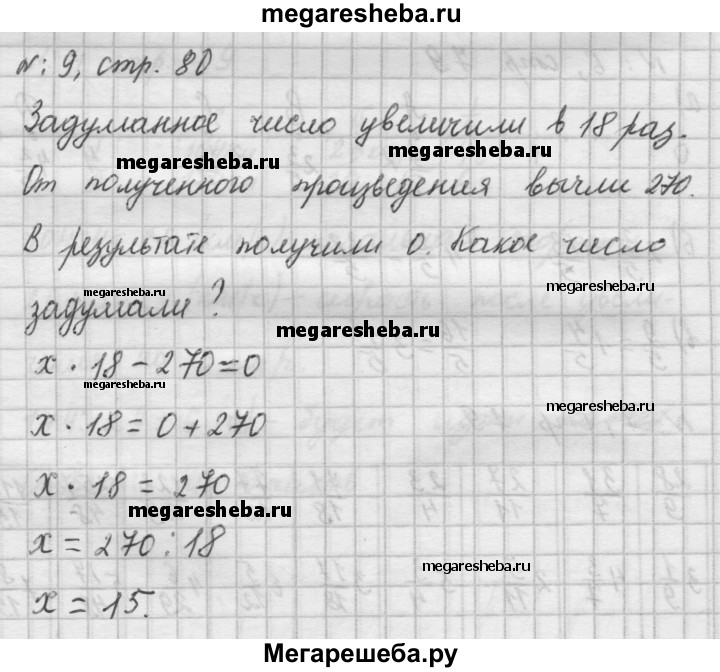 megaresheba.ru
№: 9, стр. 80
Задуманное число увеличили в 18 раз.
megaresheba.ru megaresheba.ru
От полученного произведения вычли 270.
В результате получили 0. Какое число
megaresheba.ru megaresheba.ru
задумали?
megaresheba.ru
x · 18 - 270 = 0
megaresheba.ru
megaresheba.ru
x · 18 = 0 + 270
x · 18 = 270
megaresheba.ru
x = 270 : 18
megaresheba.ru
x = 15.
Мегарешеба.ру